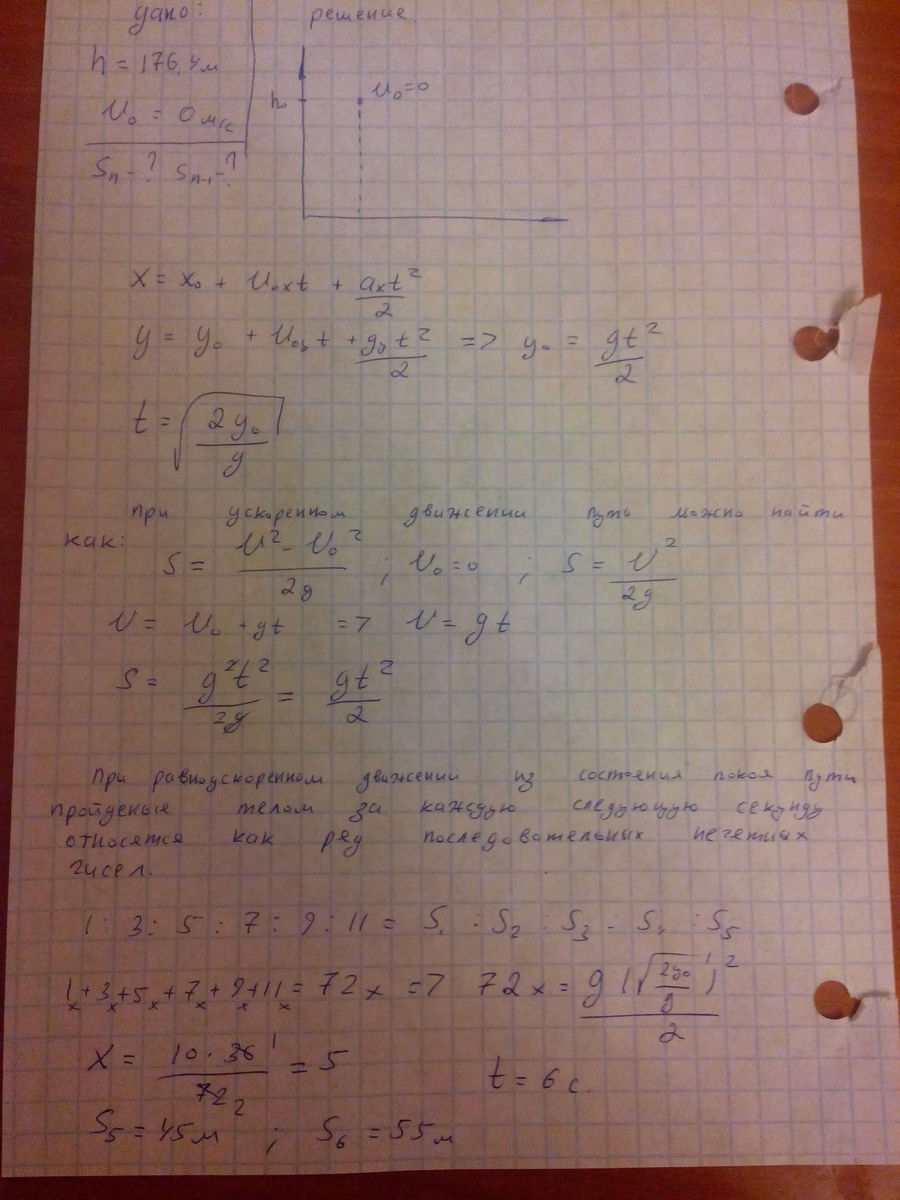 дано:
решение.
h = 176,4м
υ₀ = 0 м/с
Sₙ - ? Sₙ₋₁ - ?
h
υ₀ = 0
x = x₀ + υ₀ₓt + aₓt²/2
y = y₀ + υ₀ᵧt + gᵧt²/2 => y₀ = gt²/2
t = √(2y₀/g)
При ускоренном движении путь можно найти
как:
S = (υ² - υ₀²)/2g ; υ₀ = 0 ; S = υ²/2g
υ = υ₀ + gt => υ = gt
S = g²t²/2g = gt²/2
При равноускоренном движении из состояния покоя пути
пройденые телом за каждую следующую секунду
относятся как ряд последовательных нечетных
чисел.
1 : 3 : 5 : 7 : 9 : 11 = S₁ : S₂ : S₃ - S₄ : S₅
1x + 3x + 5x + 7x + 9x + 11x = 72x => 72x = g(√(2y₀/g))²/2
x = 10 · 36¹/72₂ = 5
t = 6 с.
S₅ = 45м ; S₆ = 55м